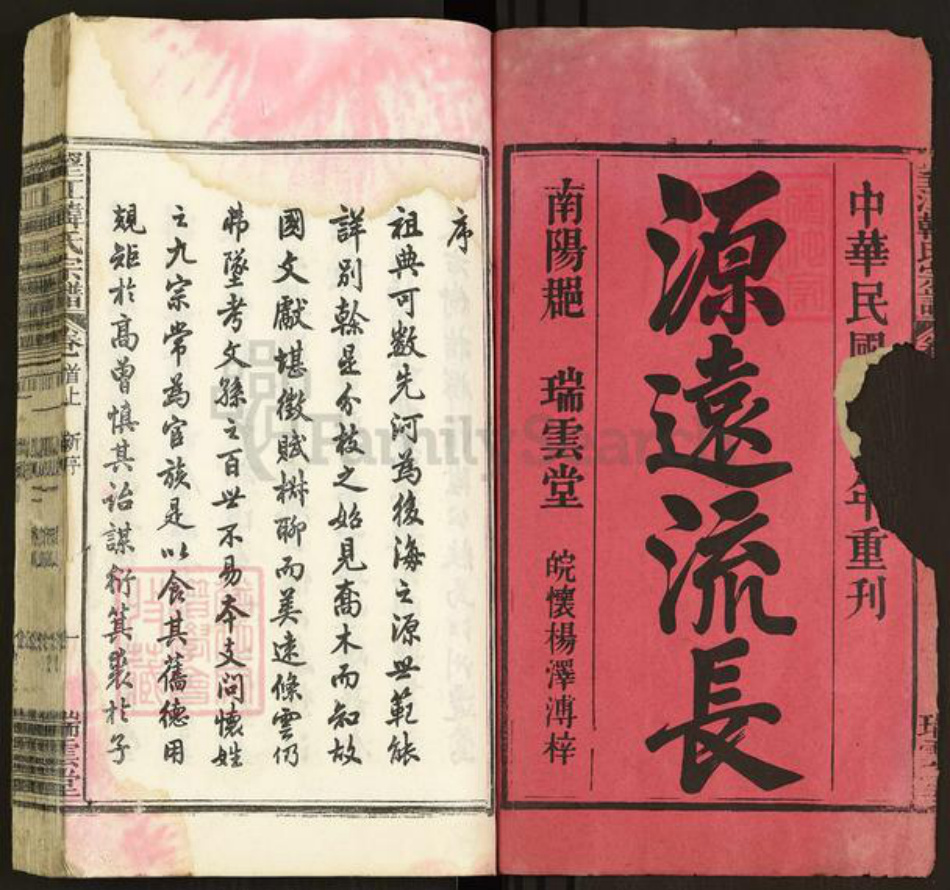 中華民國
年重刊
源遠流長
南陽郡 瑞雲堂 皖懷楊澤溥梓
序
祖典可數先河為後海之源世範能
詳別榦是分枝之始見喬木而知故
國文獻堪徵賦樹聊而美遠條雲仍
弗墜考文孫之百世不易本支問懷姓
之九宗常為官族是以食其舊德用
規矩於高曾慎其詒謀衍箕裘於子
韓氏宗譜
瑞雲堂
FamilySearch